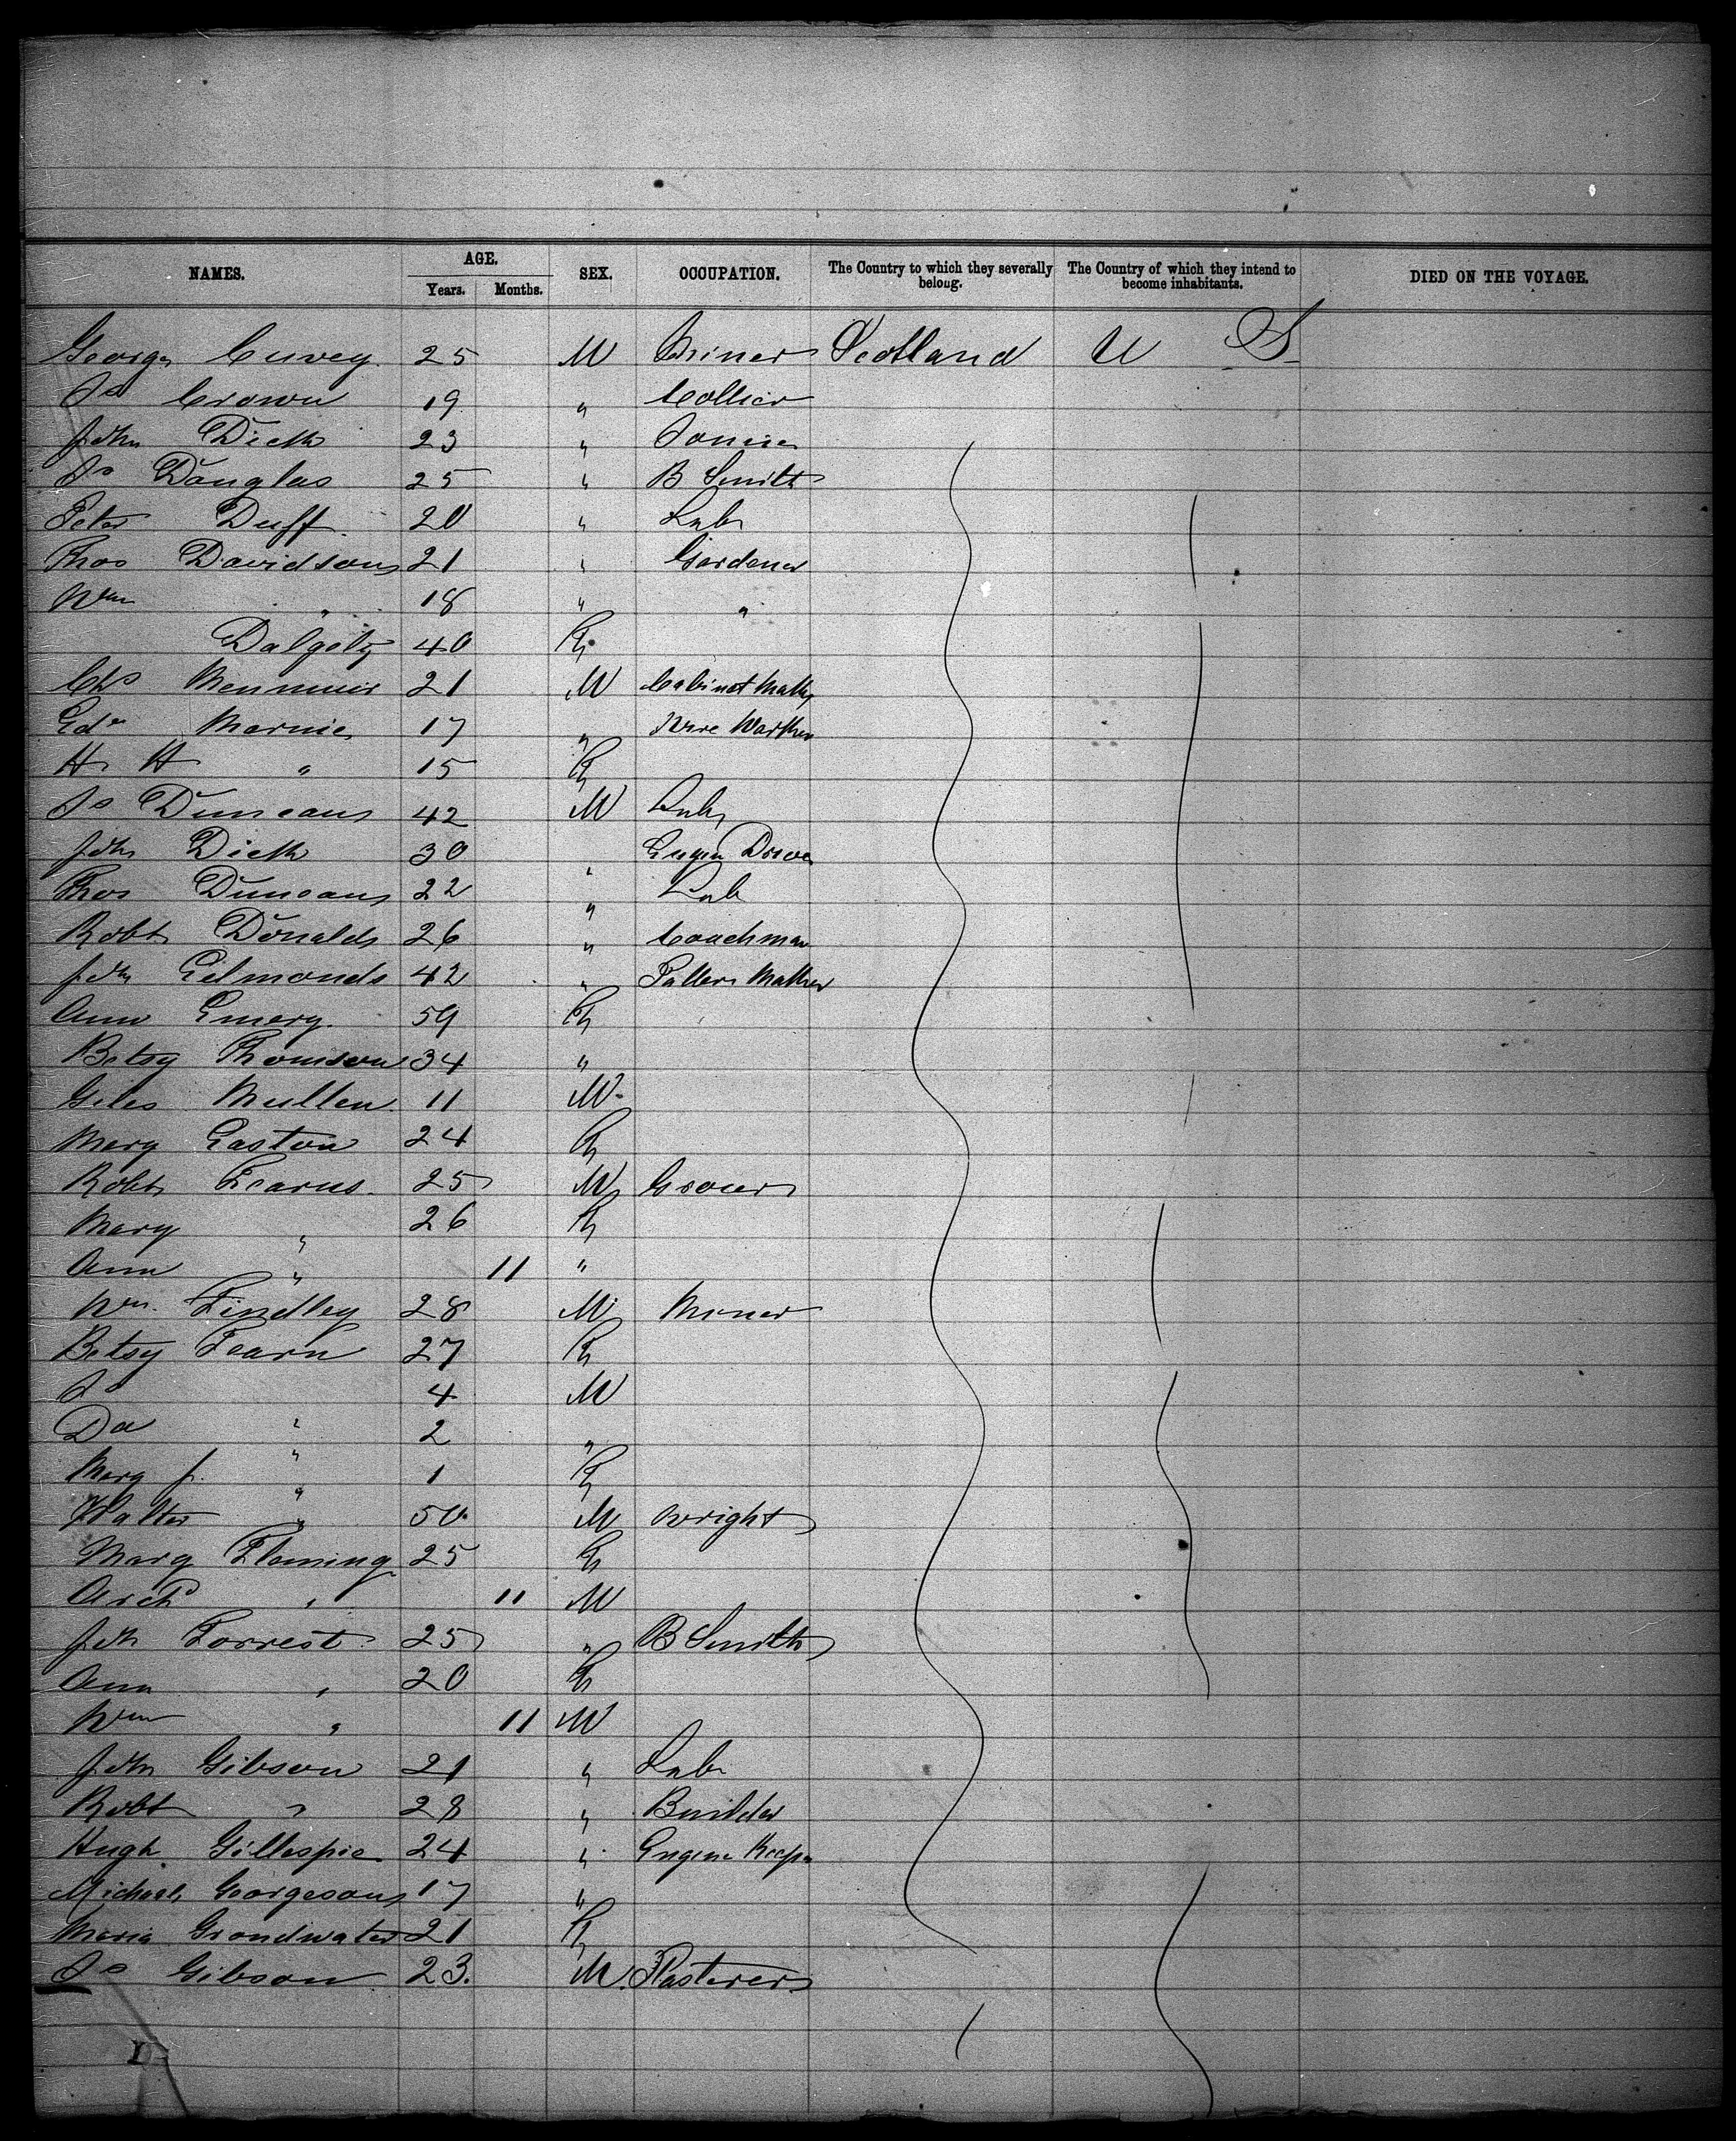 NAMES. AGE. Years. Months. SEX. OCCUPATION. The Country to which they severally belong. The Country of which they intend to become inhabitants. DIED ON THE VOYAGE.
George 25 M Miner Scotland U S
Js Crown 19 " Collier
John Dick 23 "
Js Douglas 25 " B Smith
Peter Duff 20 " Lab
Thos Davidson 21 " Gardener
Wm " 18 " "
Dalgoty 40 F
Chs Menmuir 21 M Cabinet Maker
Edw Marnie 17 " Wire Worker
H H " 15 F
Js Duncan 42 M Lab
John Dick 30 " Engin Driver
Thos Duncan 22 " Lab
Robt Donald 26 " Coachman
John Edmonds 42 " Pattern Maker
Ann Emery 59 F
Betsy Thomson 34 "
Giles Mullen 11 M
Mary Easton 24 F
Robt Fearns 25 M Grocer
Mary " 26 F
Ann " 11 "
Wm Findley 28 M Miner
Betsy Fearn 27 F
Js " 4 M
Da " 2 "
Mary J. " 1 F
Walter " 50 M Wright
Mary Fleming 25 F
Archd " 11 M
John Forrest 25 " B Smith
Ann " 20 F
Wm " 11 M
John Gibson 21 " Lab
Robt " 28 " Builder
Hugh Gillespie 24 " Engine Keeper
Michael Georgeson 17 "
Maria Grondwater 21 F
Js Gibson 23. M Plasterer